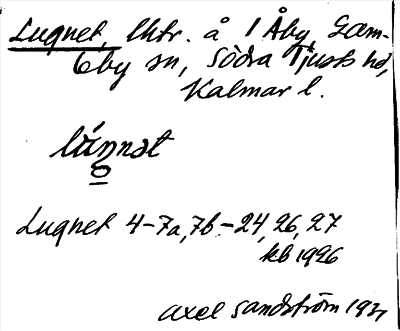 Lugnet, lhtr. å 1 Åby, Gam-
leby sn, Södra Tjusts hd,
Kalmar l.
lúŋnət
Lugnet 4-7a, 7b-24, 26, 27
kb 1926
Axel Sandström 1931